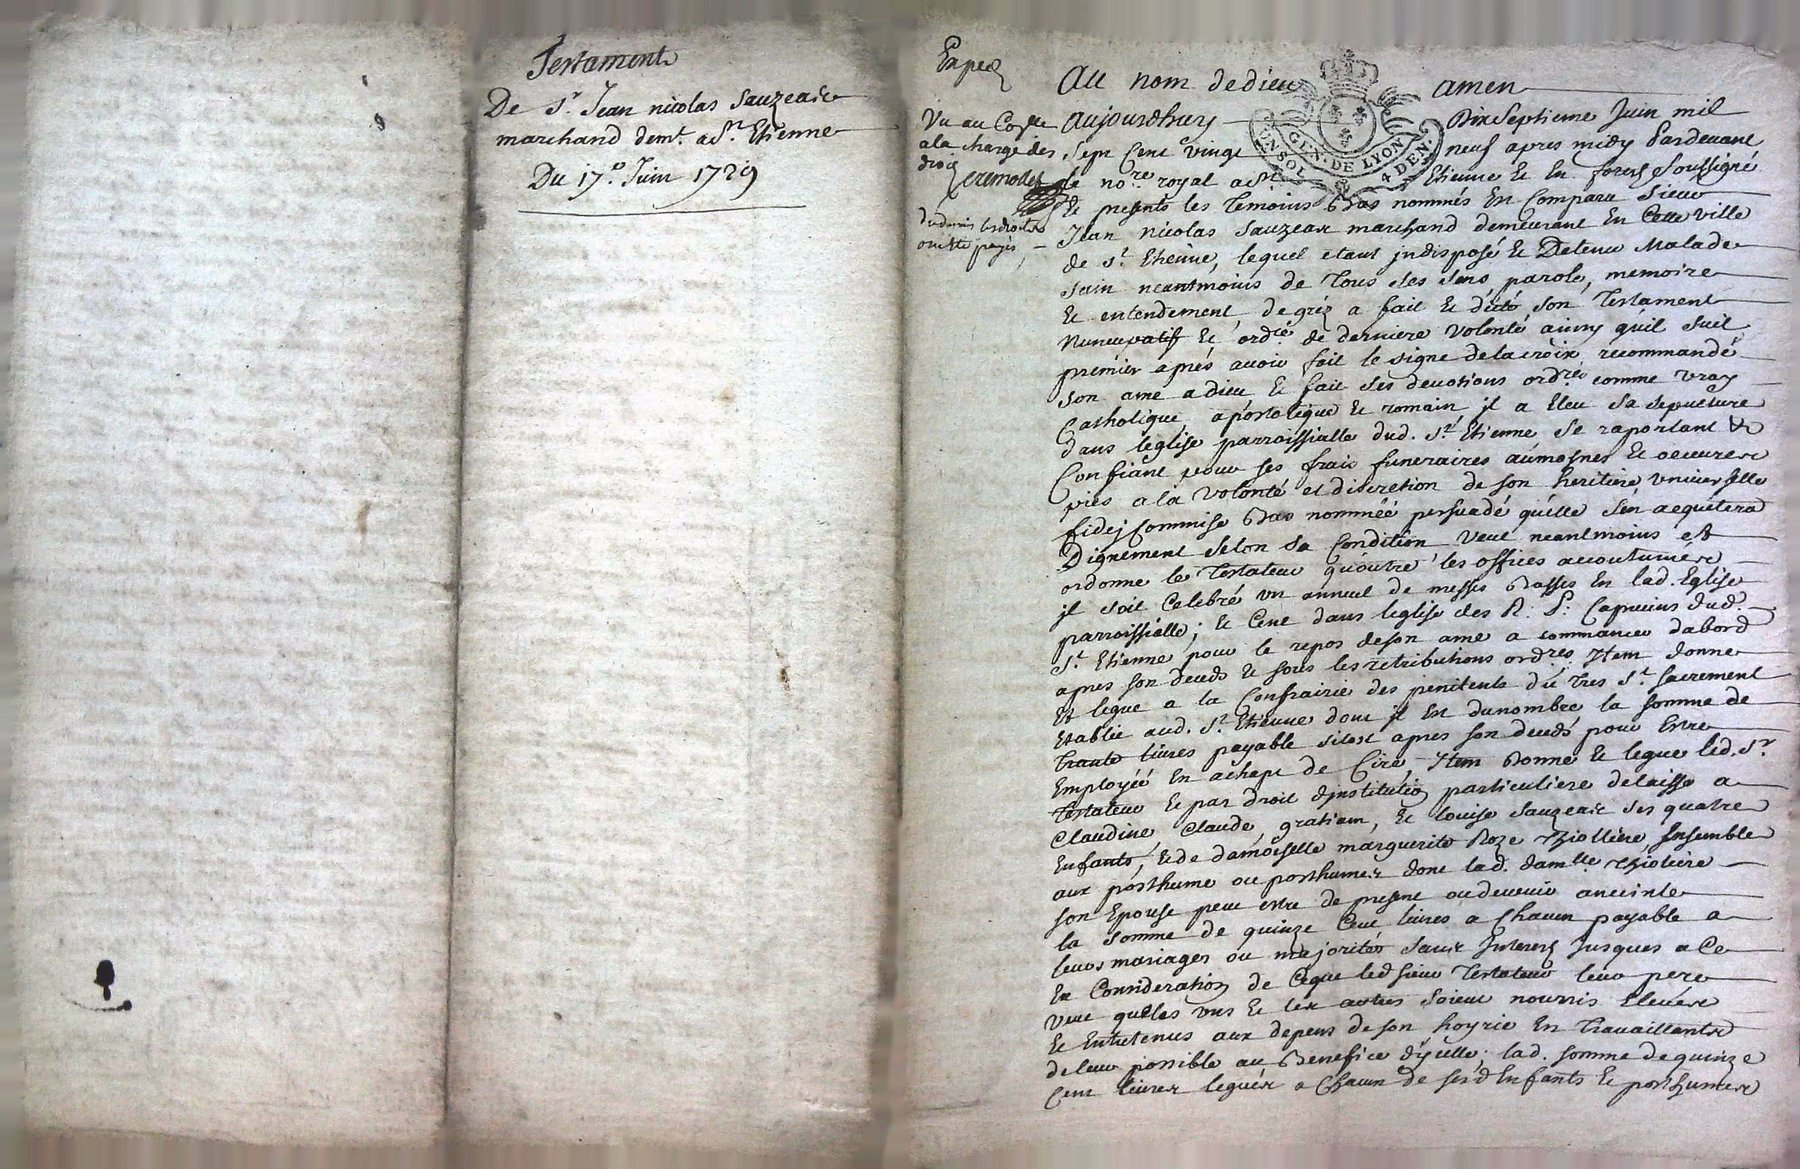 Testament
De Sr. Jean nicolas Sauzeas
marchand demt. a St. Etienne
Du 17e. Juin 1729
Exped
Vu au Coffre
a la charge des
droits
Cremodes
du depuis les droits
ont été payés
Au nom de dieu amen
GEN. DE LYON
UN SOL 4 DEN.
Aujourdhuy Dix Septieme Juin mil
Sept Cent vingt neuf apres midy Pardevant
le nore. royal a St. Etienne Et En forest soussigné
Et presents les Temoins Bas nommés En Comparu Sieur
Jean nicolas Sauzeas marchand demeurant En Cette ville
de St. Etienne, lequel etant jndisposé Et Detenu Malade
sain neantmoins de Tous ses sens, parole, memoire
Et entendement, de gréz a fait Et dicté son Testament
Nuncupatif Et ordre. de derniere Volonté ainsy quil suit
prémier aprés avoir fait le signe de la croix recommandé
son ame a dieu Et fait ses devotions ordres. comme vray
Catholique, apostolique Et romain, jl a Eleu sa sepulture
dans leglise parroissialle dud. St. Etienne se raportant Et
Confiant pour ses frais funeraires aumosnes Et oeuvres
pies a la volonté et discretion de son heritiere universelle
fidej commise Bas nommée persuadé quelle sen aquitera
Dignement selon sa Condition veut neantmoins Et
ordonne le Testateur quoutre les offices accoutumés
jl soit Celebré un annuel de messes Basses En lad. Eglise
parroissialle; Et Cent dans leglise des R. P. Capucins dud.
St. Etienne pour le repos de son ame a commancer dabord
apres son deceds Et sous les retributions ordres. Item donne
Et legue a la Confrairie des penitents du tres St. sacrement
Etablie aud. St. Etienne dont jl En du nombre la somme de
trante livres payable sitost apres son deceds pour Estre
Employée En achapt de Cire Item Donne Et legue led. Sr.
Testateur Et par droit dinstitution particuliere delaisse a
Claudine, Claude, gratian, Et louise Sauzeas ses quatre
Enfants, Et de damoiselle marguerite Roze Thiolliere, Ensemble
aux posthume ou posthumes dont lad. damlle. Thioliere
son Epouse peut estre de present ou devenir anceinte
la somme de quinze Cent livres a Chacun payable a
leurs mariages ou majorités sans Interest Jusques a Ce
En Consideration de Ceque led sieur Testateur leur pere
veut quelles uns Et les autres soient nourris Elevés
Et Entretenus aux depens de son hoyrie En Travaillants
de leur possible au Benefice dycelle; lad. somme de quinze
Cent livres leguée a Chacun de sesd Enfants Et posthumes